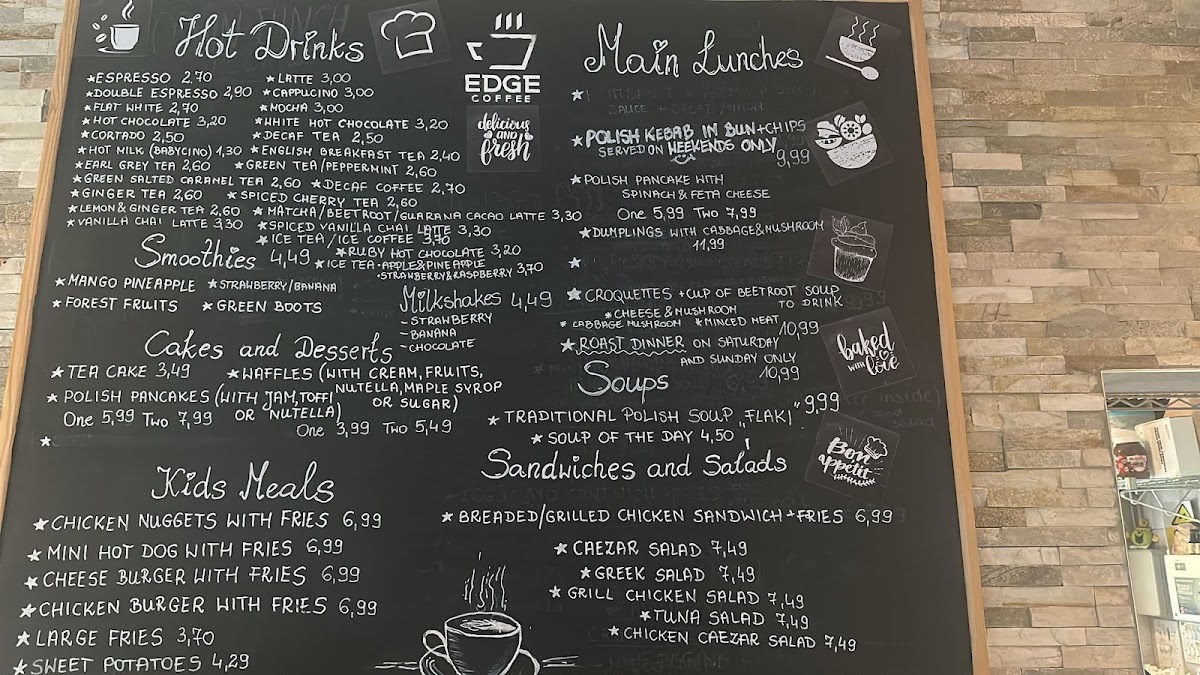 Hot Drinks
EDGE
COFFEE
delicious
AND
fresh
★ESPRESSO 2,70 ★LATTE 3,00
★DOUBLE ESPRESSO 2,90 ★CAPPUCINO 3,00
★FLAT WHITE 2,70 ★MOCHA 3,00
★HOT CHOCOLATE 3,20 ★WHITE HOT CHOCOLATE 3,20
★CORTADO 2,50 ★DECAF TEA 2,50
★HOT MILK (BABYCINO) 1,30 ★ENGLISH BREAKFAST TEA 2,40
★EARL GREY TEA 2,60 ★GREEN TEA/PEPPERMINT 2,60
★GREEN SALTED CARAMEL TEA 2,60 ★DECAF COFFEE 2,70
★GINGER TEA 2,60 ★SPICED CHERRY TEA 2,60
★LEMON&GINGER TEA 2,60 ★MATCHA/BEETROOT/GUARANA CACAO LATTE 3,30
★VANILLA CHAI LATTE 3,30 ★SPICED VANILLA CHAI LATTE 3,30
★ICE TEA/ICE COFFEE 3,70
★RUBY HOT CHOCOLATE 3,20
★ICE TEA •APPLE&PINEAPPLE
•STRAWBERRY&RASPBERRY 3,70
Smoothies 4,49
★MANGO PINEAPPLE ★STRAWBERRY/BANANA
★FOREST FRUITS ★GREEN BOOTS
Milkshakes 4,49
-STRAWBERRY
-BANANA
-CHOCOLATE
Cakes and Desserts
★TEA CAKE 3,49
★WAFFLES (WITH CREAM, FRUITS,
NUTELLA, MAPLE SYROP
OR SUGAR)
One 3,99 Two 5,49
★POLISH PANCAKES (WITH JAM, TOFFI
OR NUTELLA)
One 5,99 Two 7,99
★
Kids Meals
★CHICKEN NUGGETS WITH FRIES 6,99
★MINI HOT DOG WITH FRIES 6,99
★CHEESE BURGER WITH FRIES 6,99
★CHICKEN BURGER WITH FRIES 6,99
★LARGE FRIES 3,70
★SWEET POTATOES 4,29
Main Lunches
★
★POLISH KEBAB IN BUN+CHIPS
SERVED ON WEEKENDS ONLY
9,99
★POLISH PANCAKE WITH
SPINACH & FETA CHEESE
One 5,99 Two 7,99
★DUMPLINGS WITH CABBAGE&MUSHROOM
11,99
★
★CROQUETTES +CUP OF BEETROOT SOUP
TO DRINK
★CHEESE&MUSHROOM
★CABBAGE MUSHROOM ★MINCED MEAT 10,99
★ROAST DINNER ON SATURDAY
AND SUNDAY ONLY
10,99
Soups
★TRADITIONAL POLISH SOUP „FLAKI" 9,99
★SOUP OF THE DAY 4,50
Sandwiches and Salads
★BREADED/GRILLED CHICKEN SANDWICH+FRIES 6,99
★CAEZAR SALAD 7,49
★GREEK SALAD 7,49
★GRILL CHICKEN SALAD 7,49
★TUNA SALAD 7,49
★CHICKEN CAEZAR SALAD 7,49
baked
WITH
love
Bon
appetit